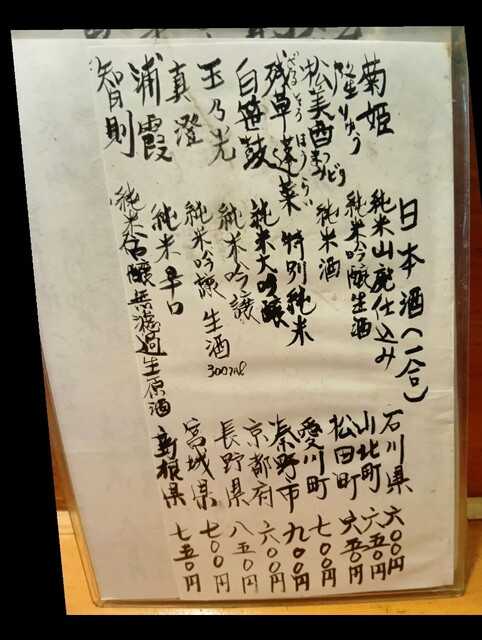 日本酒(一合)
菊姫 純米山廃仕込み 石川県 六〇〇円
隆りゅう 純米吟醸生酒 山北町 六五〇円
松美酉まつみどり 純米酒 松田町 六五〇円
残草蓬莱 ざるそうほうらい 特別純米 愛川町 七〇〇円
白笹鼓 純米大吟醸 秦野市 九〇〇円
玉乃光 純米吟醸 京都府 六〇〇円
真澄 純米吟醸 生酒 300ml 長野県 八五〇円
浦霞 純米辛口 宮城県 七〇〇円
智則 純米吟醸無濾過生原酒 島根県 七五〇円